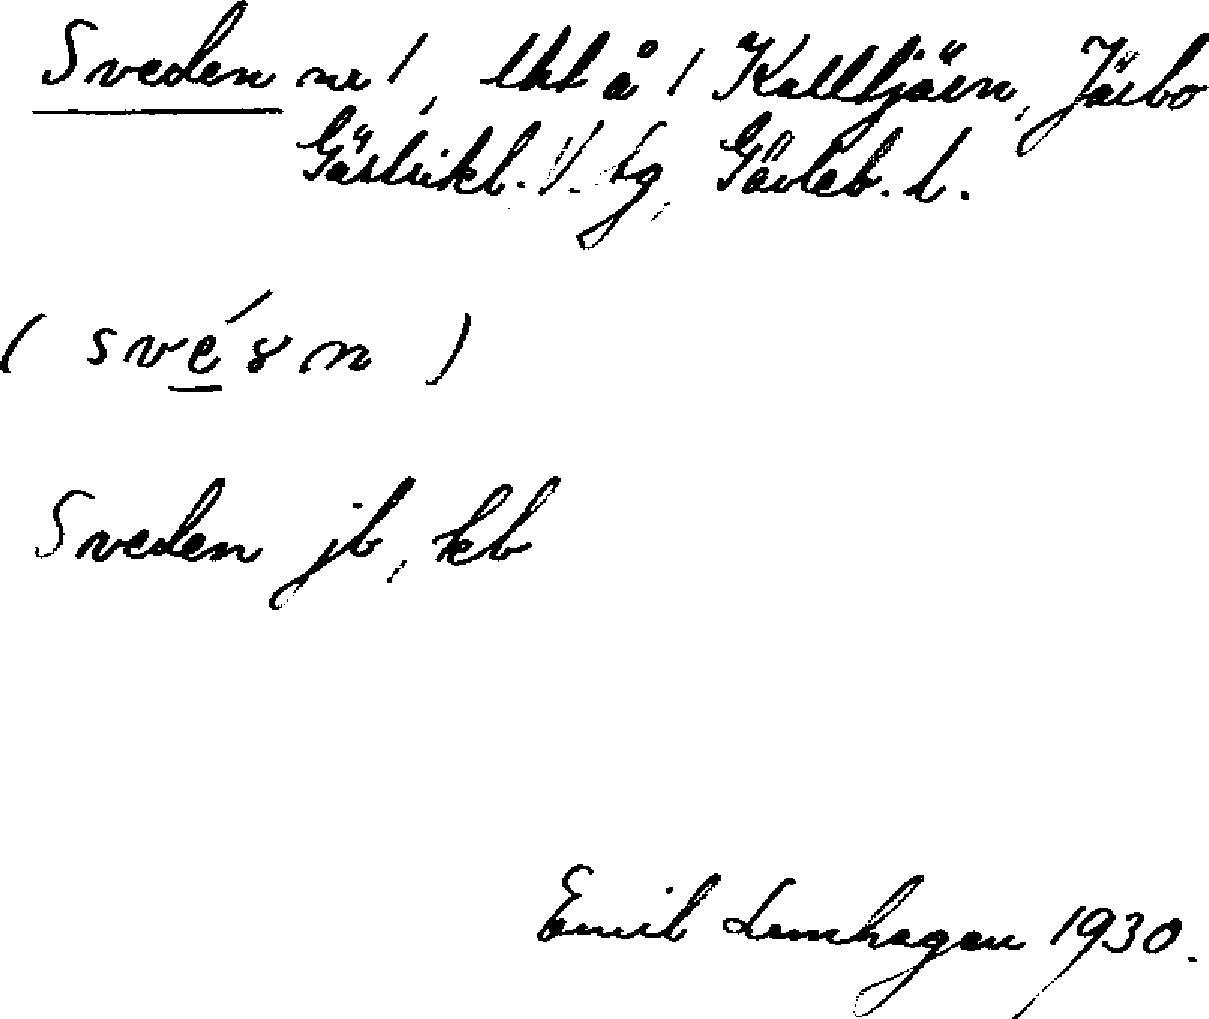 Sveden nr 1, lht å 1 Kalltjärn, Järbo
Gästrikl. V. tg, Gävleb. l.
( své̱ɤn )
Sveden jb, kb
Emil Lemhagen 1930.